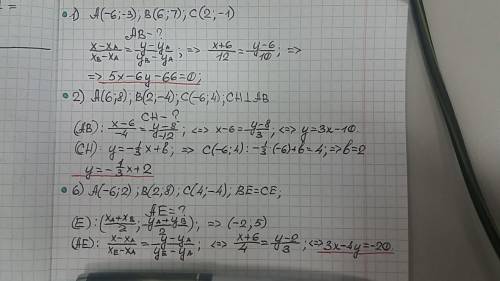 1) A(-6;-3); B(6;7); C(2;-1)
AB-?
(x-x_A)/(x_B-x_A) = (y-y_A)/(y_B-y_A); => (x+6)/12 = (y-6)/10; =>
=> 5x-6y-66=0;
2) A(6;8); B(2;-4); C(-6;4); CH⊥AB
CH-?
(AB): (x-6)/-4 = (y-8)/-12; <=> x-6=(y-8)/3; <=> y=3x-10.
(CH): y=-1/3x+b; => C(-6;4): -1/3·(-6)+b=4; => b=2
y=-1/3x+2
6) A(-6;2); B(2;8); C(4;-4), BE=CE;
AE=?
(E): ((x_A+x_B)/2; (y_A+y_B)/2); => (-2,5)
(AE): (x-x_A)/(x_E-x_A) = (y-y_A)/(y_E-y_A); <=> (x+6)/4 = (y-2)/3; <=> 3x-4y=-20.